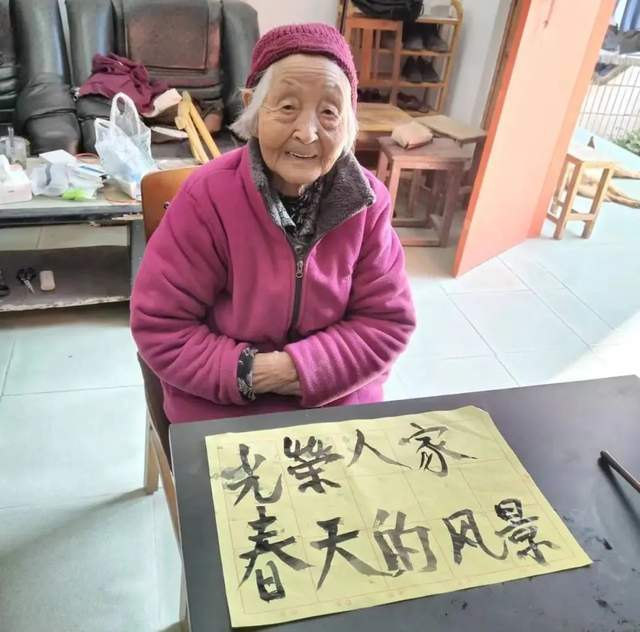 光榮人家
春天的风景